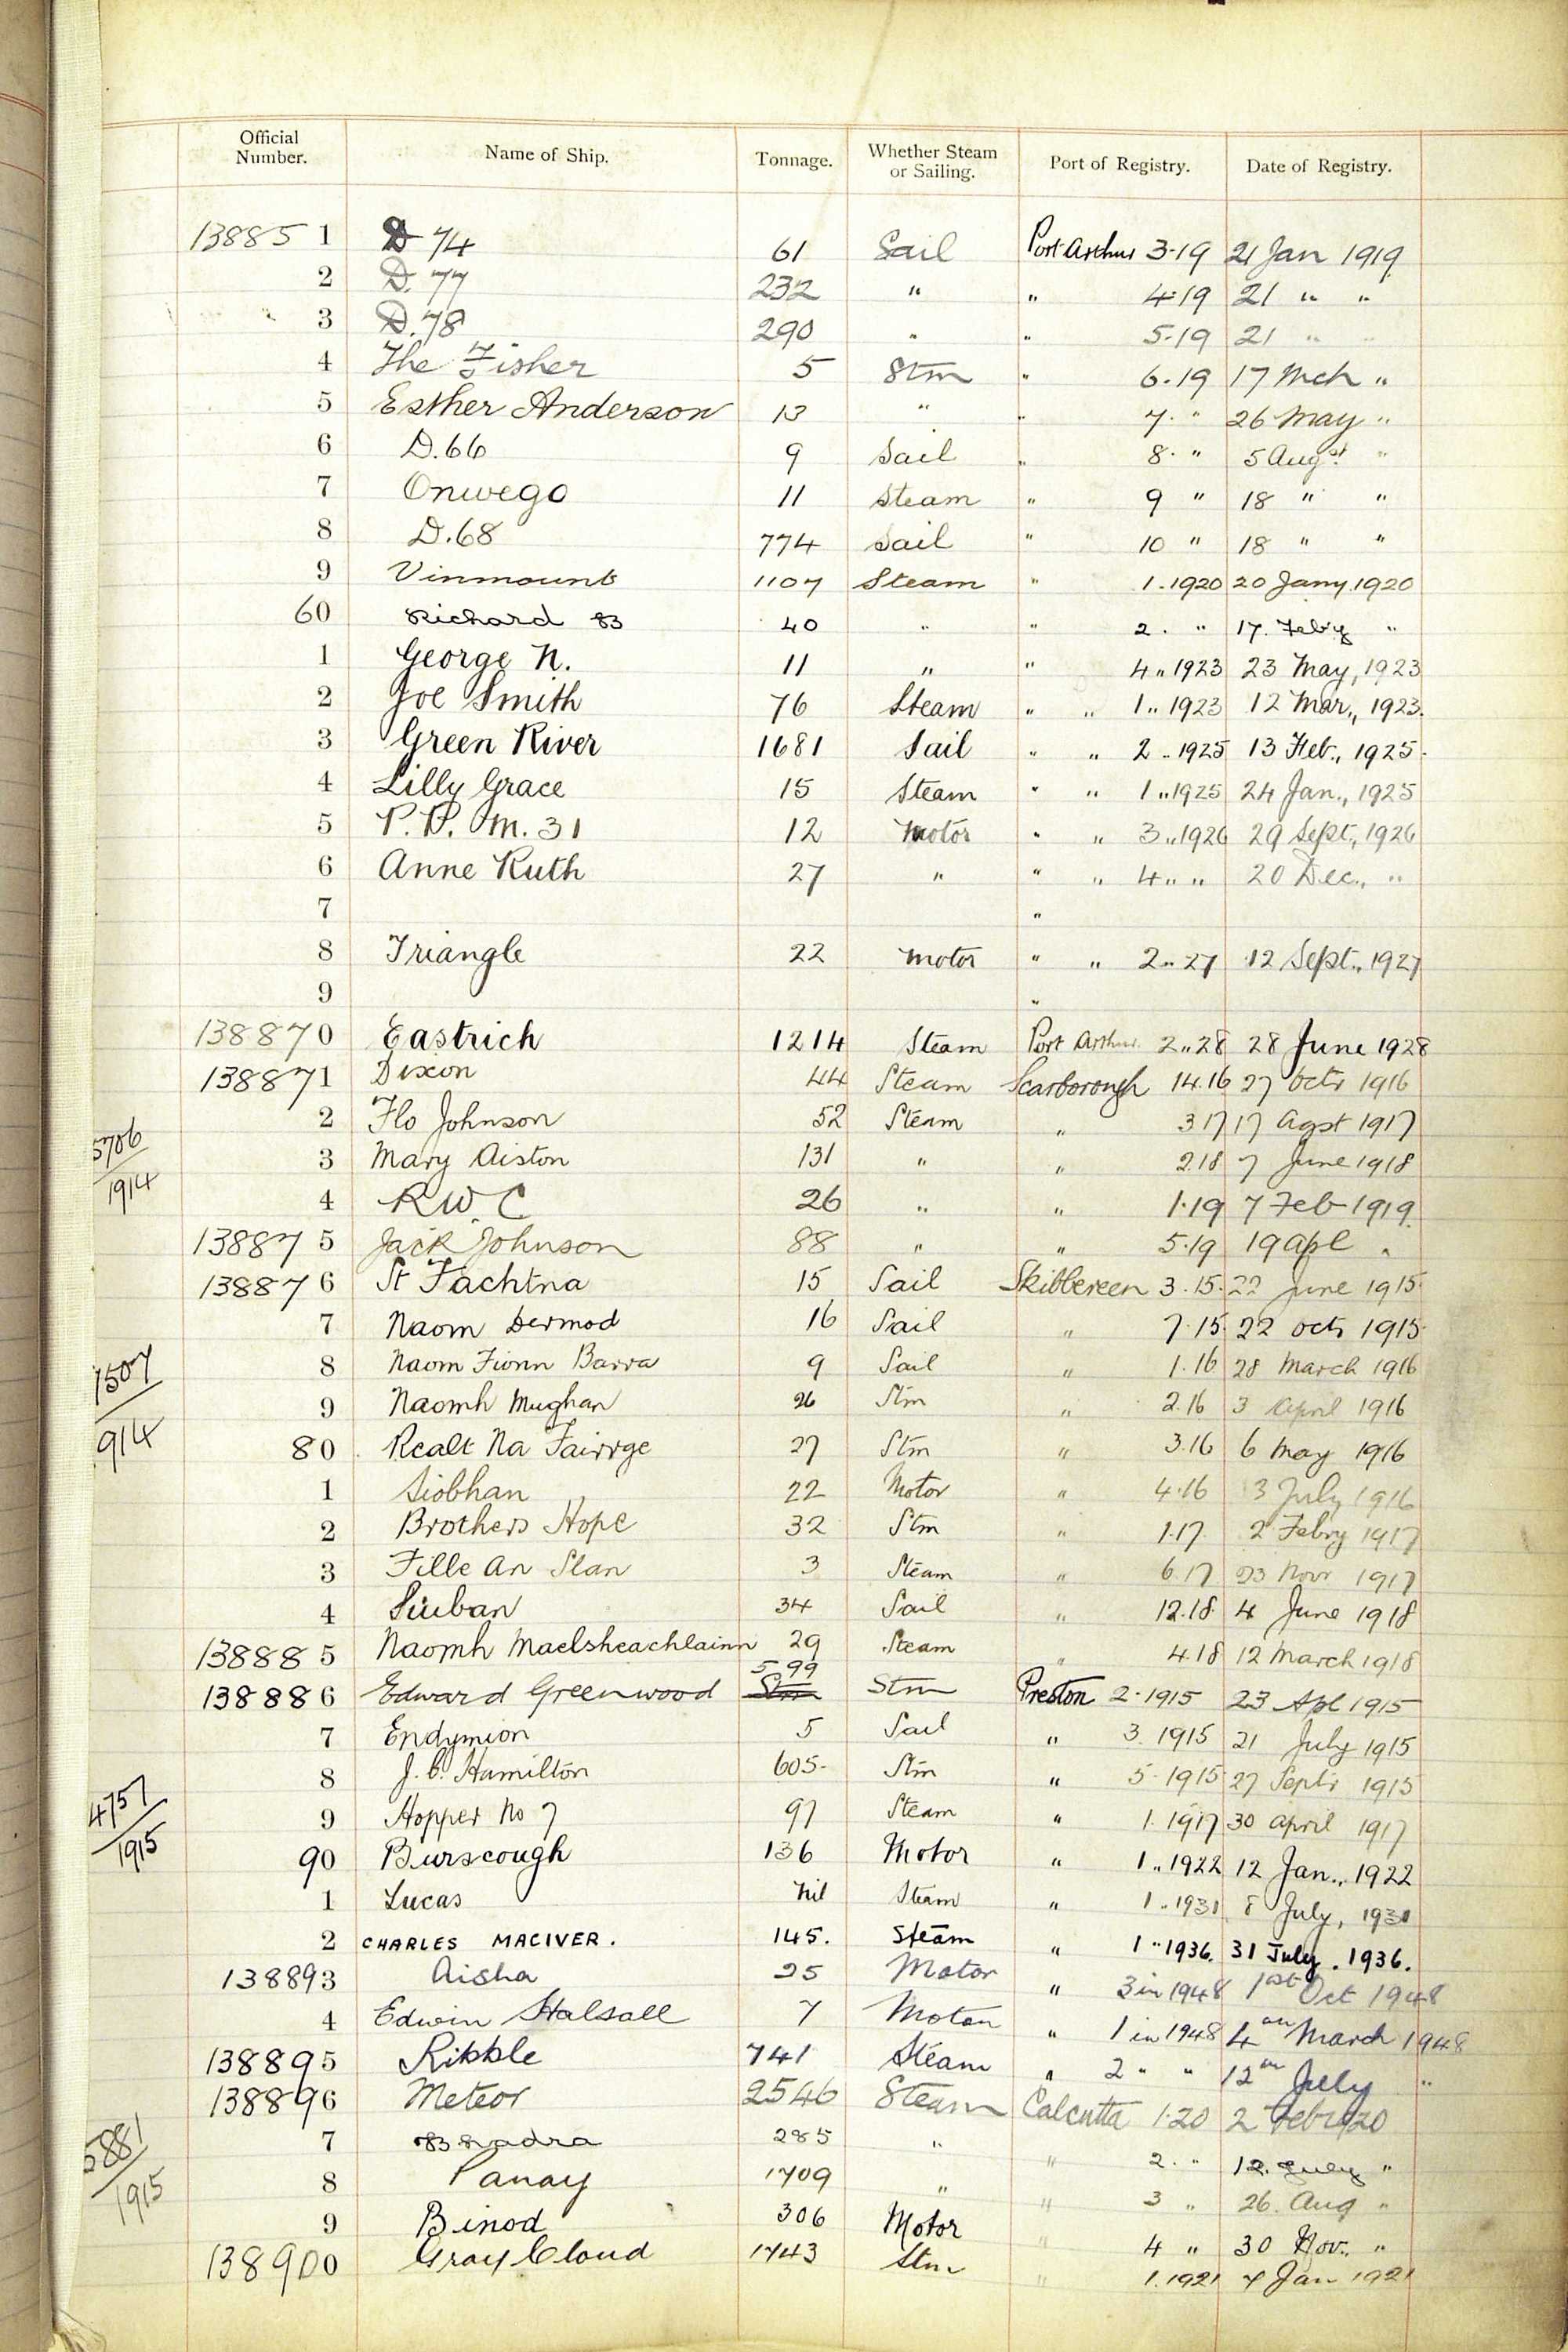 Official Number. Name of Ship. Tonnage. Whether Steam or Sailing. Port of Registry. Date of Registry.
13885 1 D 74 61 Sail Port Arthur 3.19 21 Jan 1919
2 D. 77 232 " " 4.19 21 " "
3 D. 78 290 " " 5.19 21 " "
4 The Fisher 5 Stm " 6.19 17 Mch "
5 Esther Anderson 13 " " 7. " 26 May "
6 D.66 9 Sail " 8. " 5 Augst "
7 Onwego 11 Steam " 9 " 18 " "
8 D.68 774 Sail " 10 " 18 " "
9 Vinmount 1107 Steam " 1.1920 20 Jany 1920
60 Richard B 40 " " 2. " 17. Feby "
1 George N. 11 " " 4 " 1923 23 May, 1923
2 Joe Smith 76 Steam " " 1 " 1923 12 Mar., 1923.
3 Green River 1681 Sail " " 2 " 1925 13 Feb., 1925.
4 Lilly Grace 15 Steam " " 1 " 1925 24 Jan., 1925
5 P.P. M. 31 12 Motor " " 3 " 1926 29 Sept., 1926
6 Anne Ruth 27 " " " 4 " " 20 Dec., "
7 "
8 Triangle 22 Motor " " 2 " 27 12 Sept., 1927
9 "
13887 0 Eastrich 1214 Steam Port Arthur 2 " 28 28 June 1928
13887 1 Dixon 44 Steam Scarborough 14.16 27 Octr 1916
2 Flo Johnson 52 Steam " 3 17 17 Agst 1917
5706
1914
3 Mary Aiston 131 " " 2.18 7 June 1918
4 R W C 26 " " 1.19 7 Feb 1919
13887 5 Jack Johnson 88 " " 5.19 19 Apl "
13887 6 St Fachtna 15 Sail Skibbereen 3.15. 22 June 1915.
7 Naom Dermod 16 Sail " 7.15. 22 Oct 1915.
8 Naom Fionn Barra 9 Sail " 1.16 28 March 1916
1507
914
9 Naomh Mughan 26 Stm " 2.16 3 April 1916
80 Realt Na Fairrge 27 Stm " 3.16 6 May 1916
1 Siobhan 22 Motor " 4.16 3 July 1916
2 Brothers Hope 32 Stm " 1.17. 2 Febry 1917
3 Fille An Slan 3 Steam " 6.17 23 Novr 1917
4 Siuban 34 Sail " 12.18. 4 June 1918
13888 5 Naomh Maelsheachlainn 29 Steam " 4.18 12 March 1918
13888 6 Edward Greenwood 599 Stm Stm Preston 2.1915 23 Apl 1915
7 Endymion 5 Sail " 3. 1915 21 July 1915
8 J. C. Hamilton 605- Stm " 5.1915 27 Septr 1915
4757
1915
9 Hopper No 7 97 Steam " 1. 1917 30 April 1917
90 Burscough 136 Motor " 1 " 1922 12 Jan., 1922
1 Lucas Nil Steam " 1 " 1931 8 July, 1931
2 CHARLES MACIVER. 145. Steam " 1 " 1936. 31 July. 1936.
13889 3 Aisha 25 Motor " 3 in 1948 1st Oct 1948
4 Edwin Halsall 7 Motor " 1 in 1948 4th March 1948
13889 5 Ribble 741 Steam " 2 " " 12th July "
13889 6 Meteor 2546 Steam Calcutta 1.20 2 Febr 1920
7 Bhadra 285 " " 2. " 12. July "
5881
1915
8 Panay 1709 " " 3 " 26. Aug "
9 Binod 306 Motor " 4 " 30 Nov. "
13890 0 Gray Cloud 1743 Stm " 1.1921 7 Jan 1921